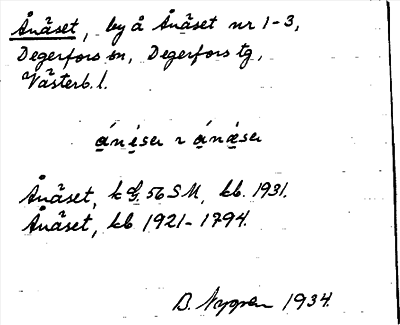 Ånäset, by å Ånäset nr 1-3,
Degerfors sn, Degerfors tg,
Västerb. l.
ánėsεr ı ánæsεr
Ånäset, k 56 SM, kb. 1931.
Ånäset, kb 1921-1794.
B. Nygren 1934.